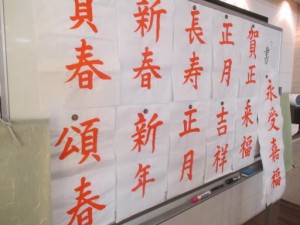 永受嘉福
賀正
乗福
正月
吉祥
長寿
正月
新春
新年
賀春
頌春